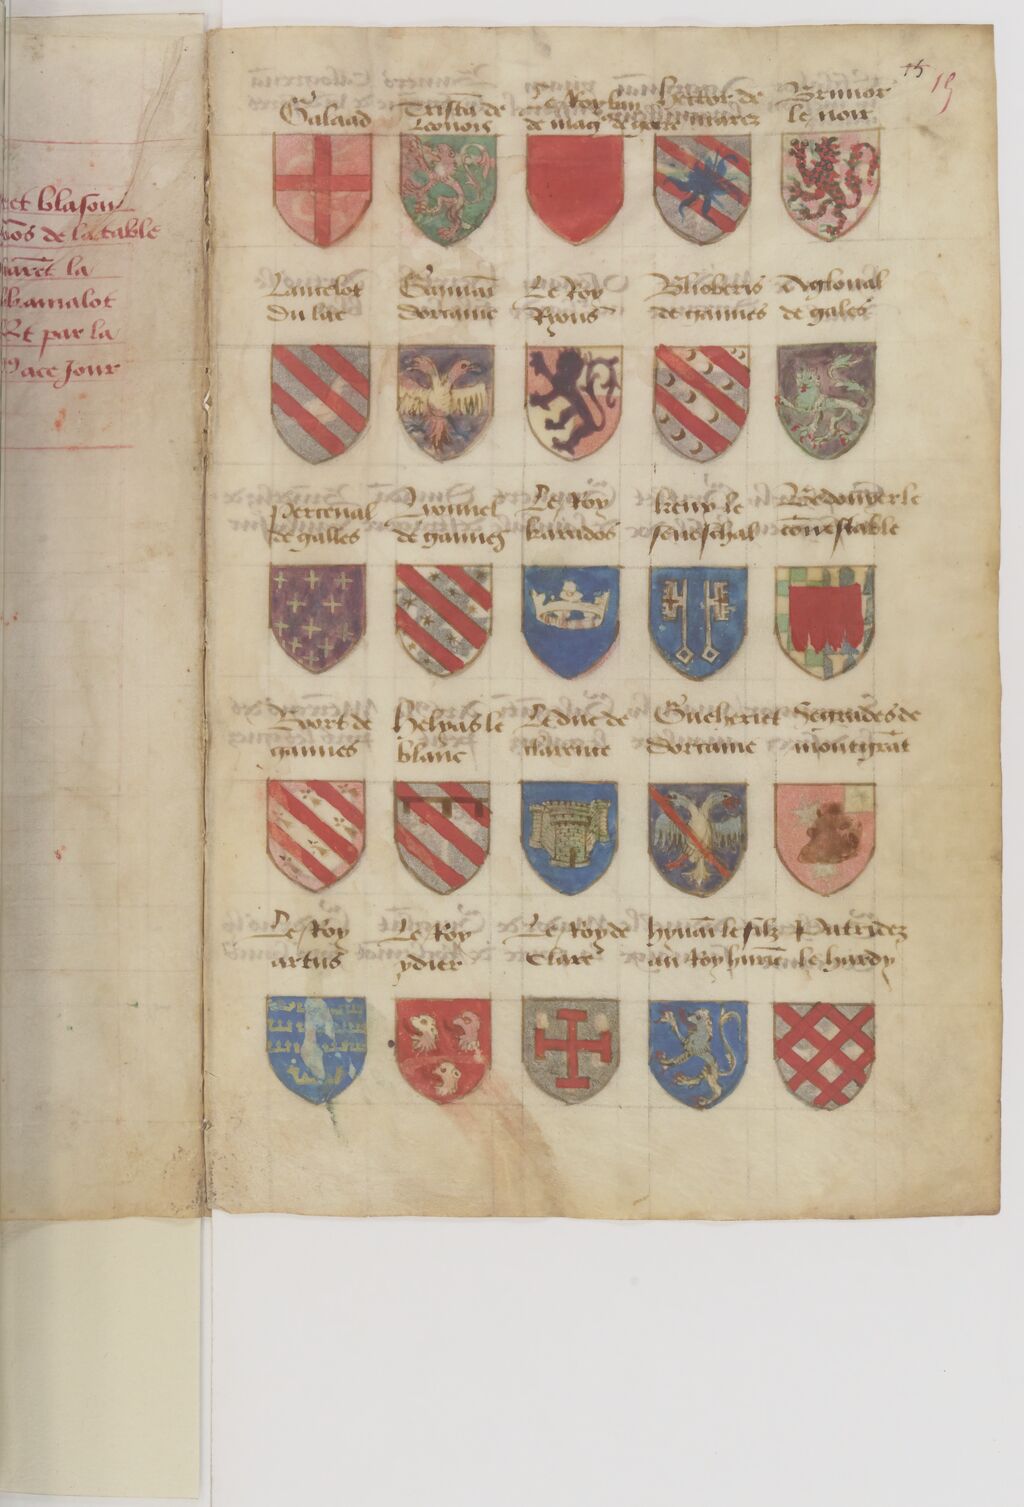 15 19
et blason
de la table
la
kamalot
Et par la
ace Jour
Galaad
Tristã de
Leonois
Le Roy
de
Hector de
marez
Brunor
le noir
Lancelot
du lac
Gauuaĩ
dorcanie
Le Roy
Rions
Blioberis
de gannes
Agloual
de gales
Perceual
de galles
Lyonnel
de gannes
Le Roy
karados
keux le
seneschal
le
cõnestable
Boort de
gannes
Helyas le
blanc
Le duc de
clarence
Gueheriet
dorcanie
Segrades de
Le Roy
artus
Le Roy
ydier
Le Roy de
Clare
le filz
au Roy
Patridez
le hardy